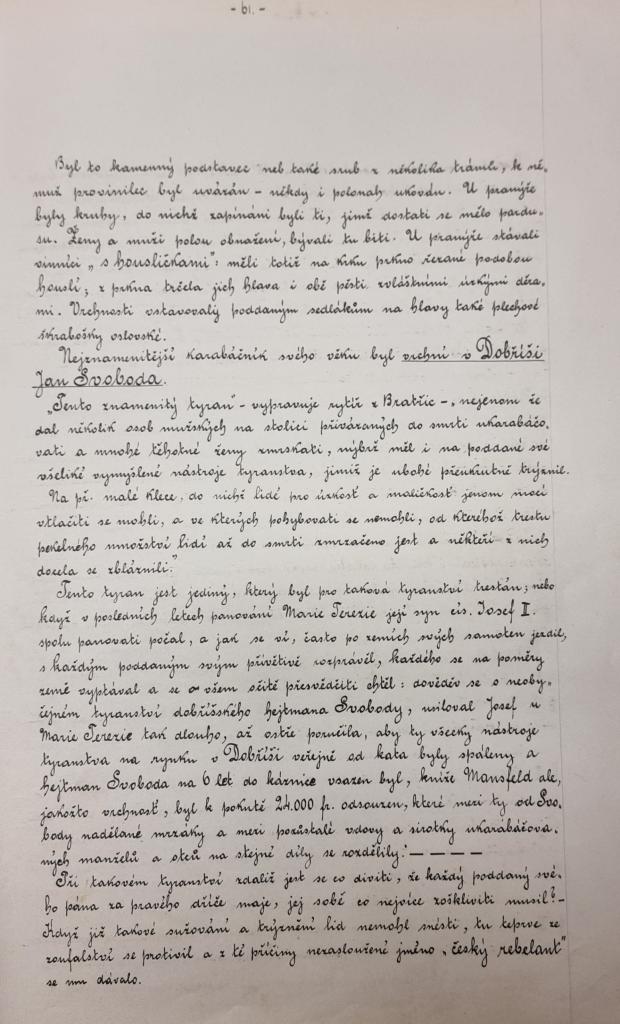 - 61. -
Byl to kamenný podstavec neb také srub z několika trámů, k ně-
muž provinilec byl uvázán - někdy i polonah ukován. U pranýře
byly kruhy, do nichž zapínáni byli ti, jimž dostati se mělo pardu-
su. Ženy a muži polou obnažení, bývali tu biti. U pranýře stávali
vinníci „s housličkami": měli totiž na krku prkno řezané podobou
houslí; z prkna trčela jich hlava i obě pěsti zvláštními úzkými děra-
mi. Vrchnosti vstavovaly poddaným sedlákům na hlavy také plechové
škrabošky oslovské.
Nejznamenitější karabáčník svého věku byl vrchní v Dobříši
Jan Svoboda.
„Tento znamenitý tyran" - vypravuje rytíř z Bratřic -, nejenom že
dal několik osob mužských na stolici přivázaných do smrti ukarabáčo-
vati a mnohé těhotné ženy zmrskati, nýbrž měl i na poddané své
všeliké vymyšlené nástroje tyranstva, jimiž je ubohé přeukrutně trýznil.
Na př. malé klece, do nichž lidé pro úzkosť a maličkosť jenom
vtlačiti se mohli, a ve kterých pohybovati se nemohli, od kteréhož trestu
pekelného množství lidí až do smrti zmrzačeno jest a někteří z nich
docela se zbláznili."
Tento tyran jest jediný, který byl pro taková tyranství trestán; nebo
když v posledních letech panování Marie Terezie její syn cís. Josef II.
spolu panovati počal, a jak se ví, často po zemích svých samoten jezdil,
s každým poddaným svým přívětivě rozprávěl, každého se na poměry
země vyptával a se o všem očitě přesvědčiti chtěl: dověděv se o neoby-
čejném tyranství dobříšského hejtmana Svobody, usiloval Josef u
Marie Terezie tak dlouho, až ostře poručila, aby ty všecky nástroje
tyranstva na rynku v Dobříši veřejně od kata byly spáleny a
hejtman Svoboda na 6 let do káznice vsazen byl, kníže Mansfeld ale,
jakožto vrchnosť, byl k pokutě 24.000 fr. odsouzen, které mezi ty od Svo-
body nadělané mrzáky a mezi pozůstalé vdovy a sirotky ukarabáčova-
ných manželů a otců na stejné díly se rozdělily." - - - -
Při takovém tyranství zdaliž jest se co diviti, že každý poddaný své-
ho pána za pravého dříče maje, jej sobě co nejvíce zoškliviti musil? -
Když již takové sužování a trýznění lid nemohl snésti, tu teprve ze
zoufalství se protivil a z té příčiny nezasloužené jméno „český rebelant"
se mu dávalo.